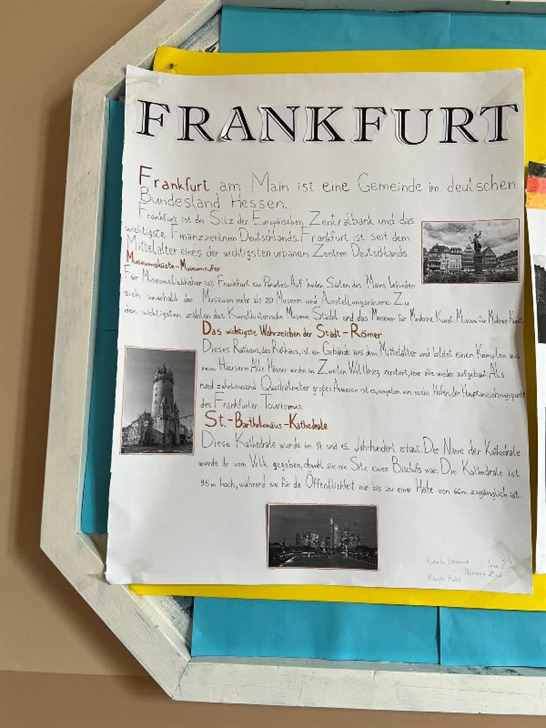 FRANKFURT
Frankfurt am Main ist eine Gemeinde im deutschen
Bundesland Hessen.
Frankfurt ist der Sitz der Europäischen Zentralbank und das
wichtigste Finanzzentrum Deutschlands. Frankfurt ist seit dem
Mittelalter eines der wichtigsten urbanen Zentren Deutschlands.
Museumsküste-Museumsufer
Für Museumsliebhaber ist Frankfurt ein Paradies. Auf beiden Seiten des Mains befinden
sich innerhalb der Museen mehr als 20 Museen und Ausstellungsräume. Zu
den wichtigsten zählen das Museum Städel und das Museum für Moderne Kunst
Das wichtigste Wahrzeichen der Stadt-Römer
Dieses Rathaus, das Rathaus, ist ein Gebäude aus dem Mittelalter und bildet einen Komplex aus
neun Häusern. Alle Häuser wurden im Zweiten Weltkrieg zerstört, aber wieder aufgebaut. Als
rund Quadratmeter großes Anwesen ist es, umgeben von neun Höfen, der Hauptanziehungspunkt
des Frankfurter Tourismus.
St.-Bartholomäus-Kathedrale
Diese Kathedrale wurde im 14. und 15. Jahrhundert erbaut. Der Name der Kathedrale
wurde ihr vom Volk gegeben, obwohl sie nie Sitz eines Bischofs war. Die Kathedrale ist
95 m hoch, während sie für die Öffentlichkeit nur bis zu einer Höhe von 66m zugänglich ist.